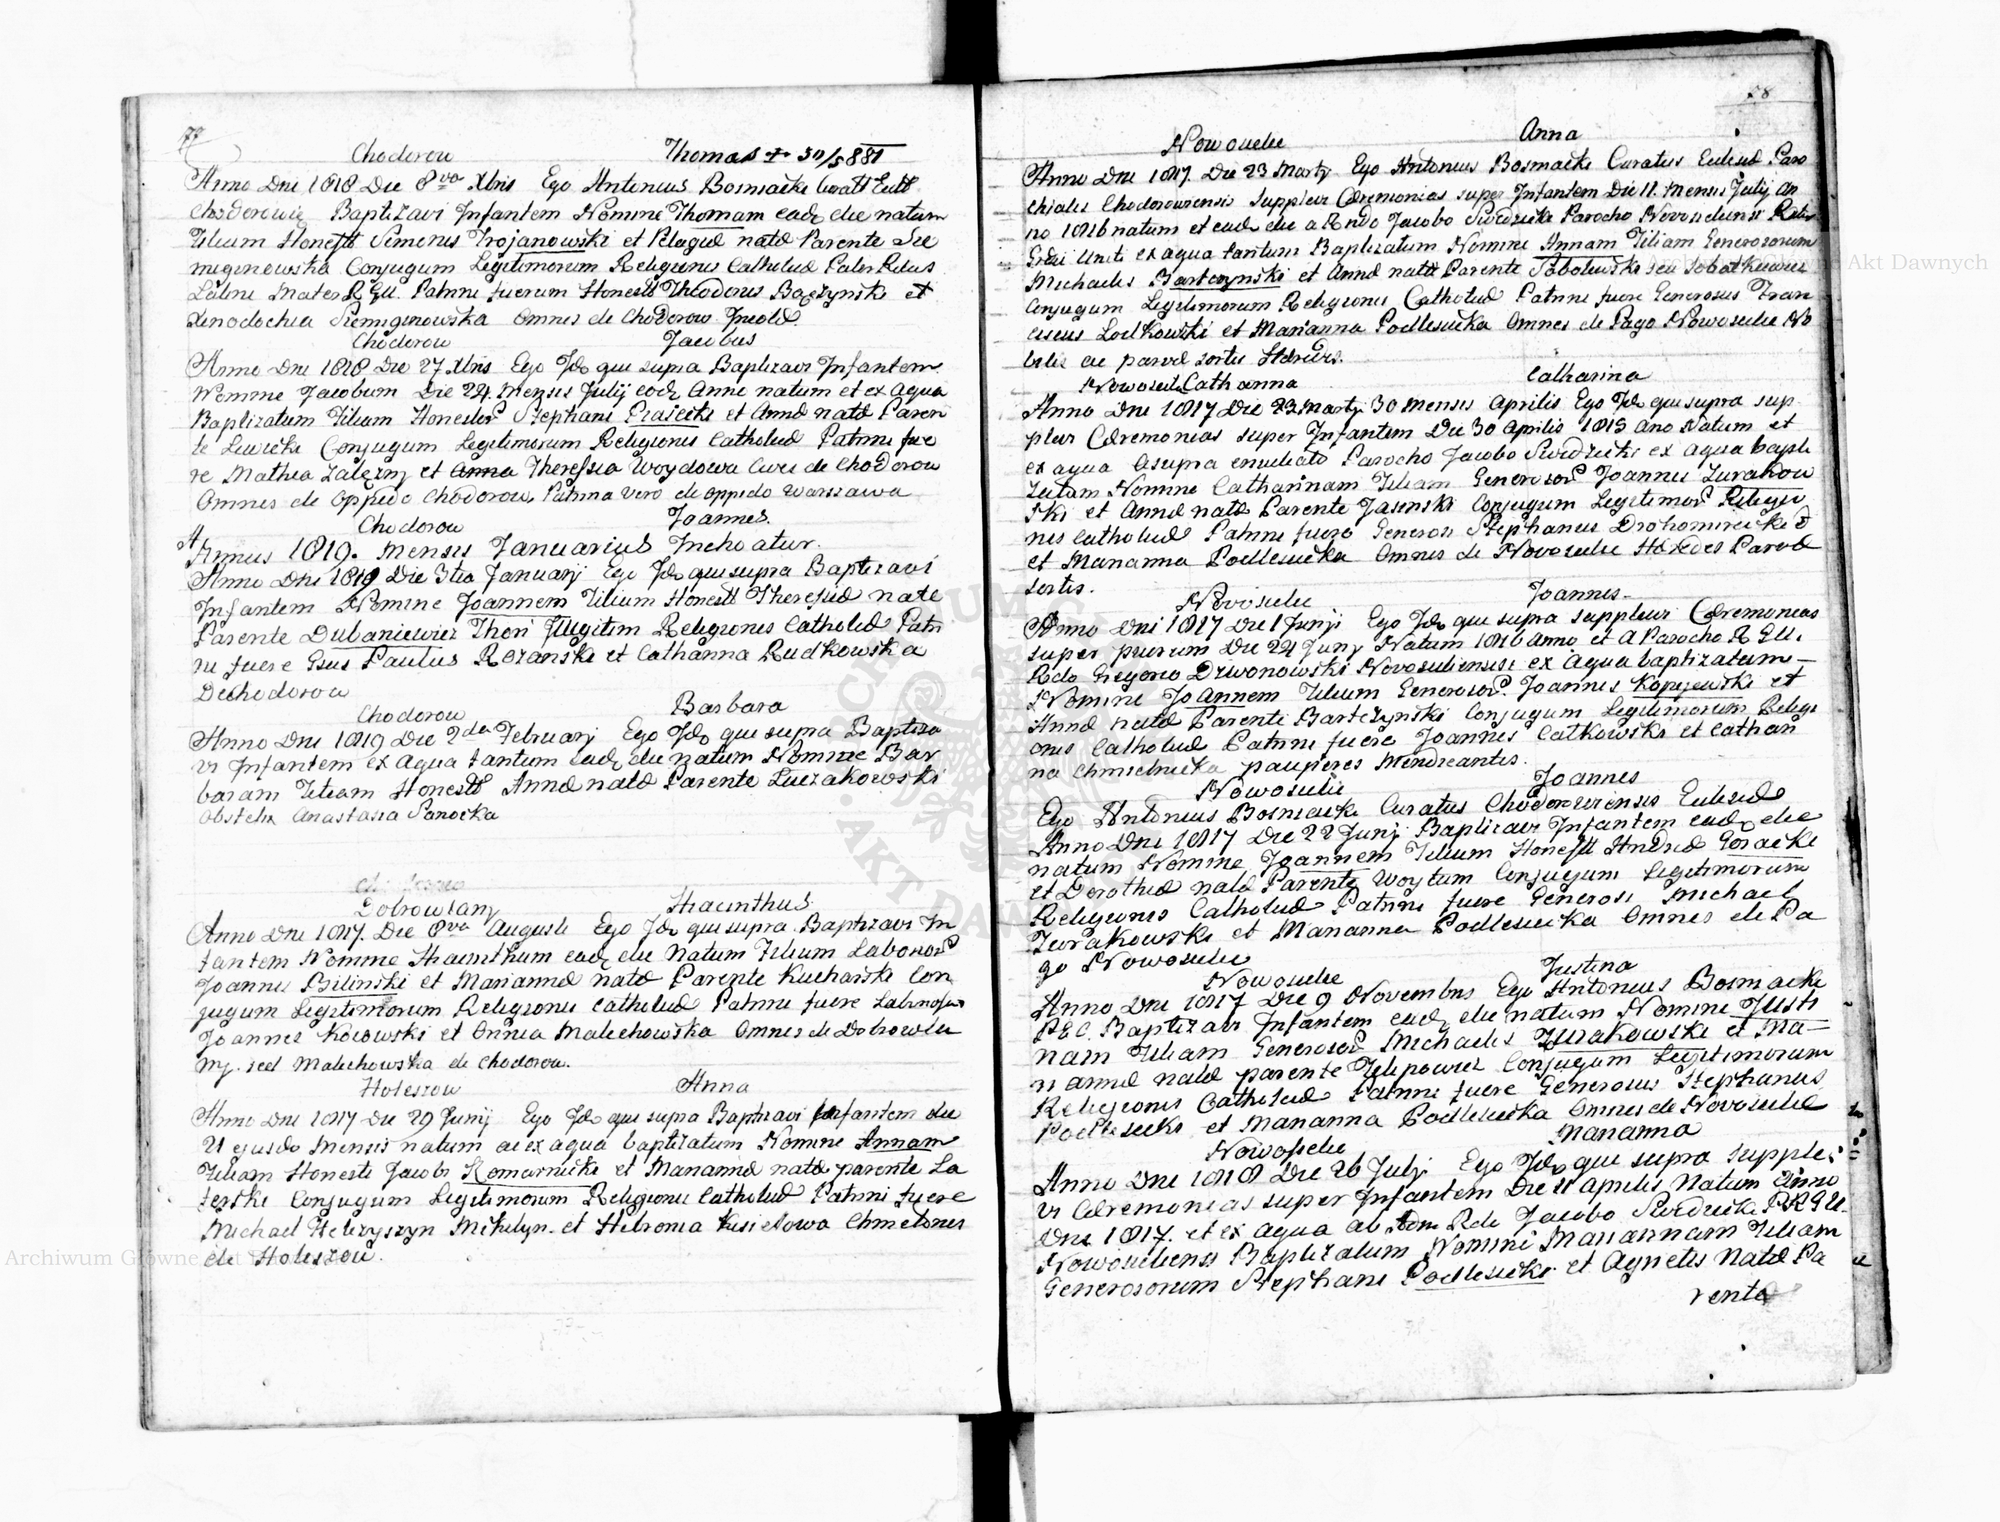 77
Chodorow Thomas + 30/5 881
Anno Dni 1818 Die 8va Xbris Ego Antonius Bosniacki Curatt Eccl
Chodorowię Baptizavi Infantem Nomine Thomam eadę die natum
Filium Honestt Simonis Trojanowski et Pelagiæ natæ Parente Sie
miginowska Conjugum Legitimorum Religionis Catholicæ Pater Ritus
Latini Mater R Gtt. Patrini fuerunt Honestt Theodorus Baczynski et
Xenodochia Siemiginowska Omnes de Chodorow Incolæ.
Chodorow Jacobus
Anno Dni 1818 Die 27 Xbris Ego Idę qui supra Baptizavi Infantem
Nomine Jacobum Die 24 Mensis Julij eodę Anno natum et ex aqua
Baptizatum Filium Honestor Stephani Grasecki et Annæ natæ Paren
te Lewicka Conjugum Legitimorum Religionis Catholicæ Patrini fue
re Mathia Zalęzny et Anna Theressia Woydowa Cives de Chodorow
Omnes de Oppido Chodorow, Patrina vero de oppido Warszawa
Chodorow Joannes.
Annus 1819. Mensis Januarius Inchoatur.
Anno Dni 1819 Die 3tia Januarij Ego Idę qui supra Baptizavi
Infantem Nomine Joannem Filium Honestt Theresiæ natæ
Parente Dubaniewicz Thori Illegitim Religionis Catholicæ Patri
ni fuere Gsus Paulus Rozanski et Catharina Rudkowska
De Chodorow
Chodorow Barbara
Anno Dni 1819 Die 2da Februarij Ego Idę qui supra Baptiza
vi Infantem ex aqua tantum eadę die natum Nomine Bar
baram Filiam Honestt Annæ natæ Parente Luczakowski
Obstetrix Anastasia Sanocka
Dobrowlany Hiacinthus
Anno Dni 1817. Die 8va Augusti Ego Idę qui supra Baptizavi In
fantem Nomine Hiacinthum eadę die Natum Filium Laborios
Joannis Bilinski et Mariannæ natæ Parente Kucharski Con
jugum Legitimorum Religionis Catholicæ Patrini fuere
Joannes Kozowski et Onysia Malechowska Omnes de Dobrowla
ny. sed Malechowska de Chodorow.
Holeszow Anna
Anno Dni 1817 Die 29 Junij Ego Idę qui supra Baptizavi Infantem die
21 ejusdo Mensis natum ac ex aqua baptizatum Nomine Annam
Filiam Honesti Jacobi Komarnicki et Mariannæ natæ parente La
ferski Conjugum Legitimorum Religionis Catholicæ Patrini fuere
Michael Helczyszyn Mikityn. et Helronia Kusielowa Chmetones
de Holeszow.
78
Nowosielce Anna
Anno Dni 1817. Die 23 Marty Ego Antonius Bosniacki Curatus Ecclesiæ Paro
chialis Chodoroviensis Supplevi Cæremonias super Infantem Die 11. Mensis Julij An
no 1816 natum et eadę die a Rndo Jacobo Swidzicki Parocho Novosielensi Ritus
Græci Uniti ex aqua tantum Baptizatum Nomine Annam Filiam Generosorum
Michaelis Bartczynski et Annæ natæ Parente Sobolewski seu Sobotkiewicz
Conjugum Legitimorum Religionis Catholicæ Patrini fuere Generosus Fran
ciscus Lodkowski et Marianna Podlesiecka Omnes de Pago Nowosielce No
biles ac parvæ sortis Hæredes.
Nowosielce Catharina Catharina
Anno Dni 1817 Die 23 Marty 30 Mensis Aprilis Ego Idę qui supra sup
plevi Cæremonias super Infantem Die 30 Aprilis 1815 Ano Natum et
ex aqua a supra enuntiato Parocho Jacobo Swidzicki ex aqua bapti
zatam Nomine Catharinam Filiam Generosor Joannis Zurakow
ski et Annæ natæ Parente Jasinski Conjugum Legitimor Religio
nis Catholicæ Patrini fuere Generosi Stephanus Drohomirecki
et Marianna Podlesiecka Omnes de Novosielce Hæredes Parvæ
Sortis.
Novosielce Joannes.
Anno Dni 1817 Die 1 Junij Ego Idę qui supra supplevi Cæremonias
super puerum Die 24 Junij Natum 1816 Anno et a Parocho R Gtt.
Rdo Gregorio Dziwonowski Novosieliensis ex Aqua baptizatum
Nomine Joannem Filium Generosor. Joannis Kopijewski et
Annæ natæ Parente Bartczynski Conjugum Legitimorum Religi
onis Catholicæ Patrini fuere Joannes Catkowski et Cathari
na Chmielnicka pauperes Mendicantes.
Nowosielce Joannes
Ego Antonius Bosniacki Curatus Chodoroviensis Ecclesiæ
Anno Dni 1817 Die 22 Junij Baptizavi Infantem eadę die
natum Nomine Joannem Filium Honestt Andreæ Goracki
et Dorotheæ natæ Parente Woytum Conjugum Legitimorum
Religionis Catholicæ Patrini fuere Generosi Michael
Zurakowski et Marianna Podlesiecka Omnes de Pa
go Nowosielce
Nowosielce Justina
Anno Dni 1817 Die 9 Novembris Ego Antonius Bosniacki
P.E.C. Baptizavi Infantem eadę die natum Nomine Justi
nam Filiam Generosor Michaelis Zurakowski et Ma-
riannæ natæ parente Filipowicz Conjugum Legitimorum
Religionis Catholicæ Patrini fuere Generosus Stephanus
Podlesiecki et Marianna Podlesiecka Omnes de Novosielce
Nowosielce Marianna
Anno Dni 1818 Die 26 Julij Ego Idę qui supra supple
vi Cæremonias super Infantem Die 11 Aprilis Natum Anno
Dni 1817. et ex aqua ab Rdo Jacobo Swidzicki P.R.G.U.
Nowosielensi Baptizatum Nomine Mariannam Filiam
Generosorum Stephani Podlesiecki et Agnetis Natæ Pa
rente
Archiwum Główne Akt Dawnych